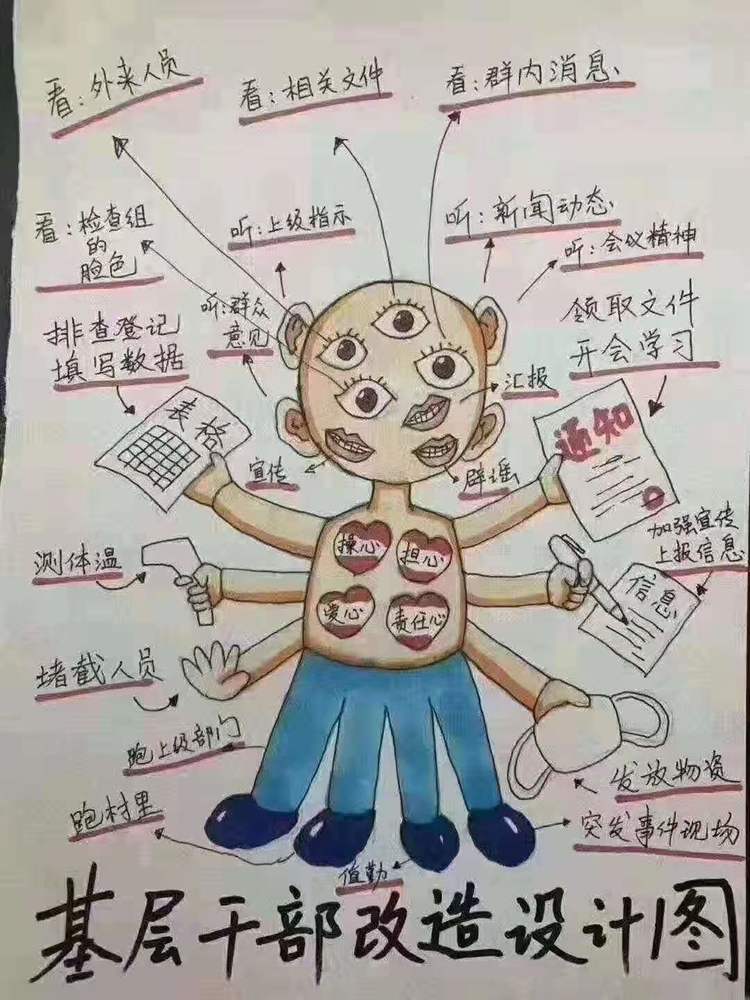 看:外来人员
看:相关文件
看:群内消息
看:检查组
的
脸色
听:上级指示
听:新闻动态
听:会议精神
听:群众
意见
排查登记
填写数据
领取文件
开会学习
汇报
表格
通知
宣传
辟谣
加强宣传
上报信息
测体温
操心
担心
信息
爱心
责任心
堵截人员
跑上级部门
发放物资
跑村里
突发事件现场
值勤
基层干部改造设计图